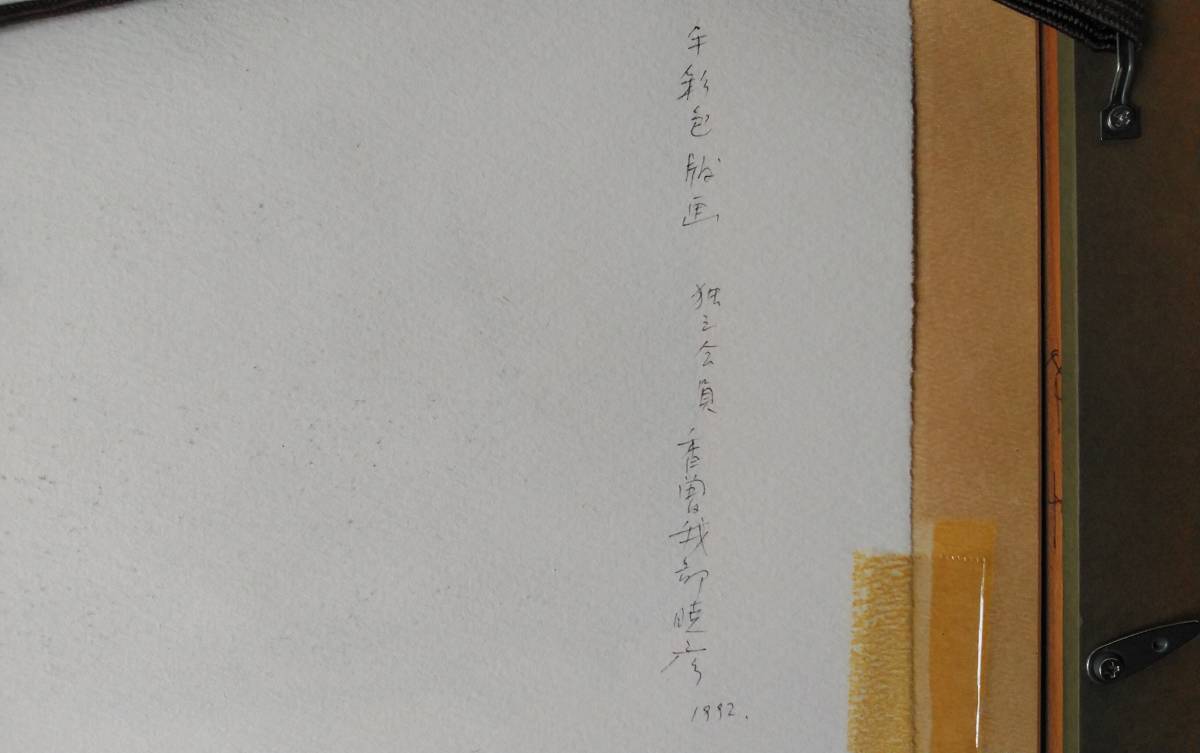 手彩色版画 独立会員 香曽我部暁彦
1992.